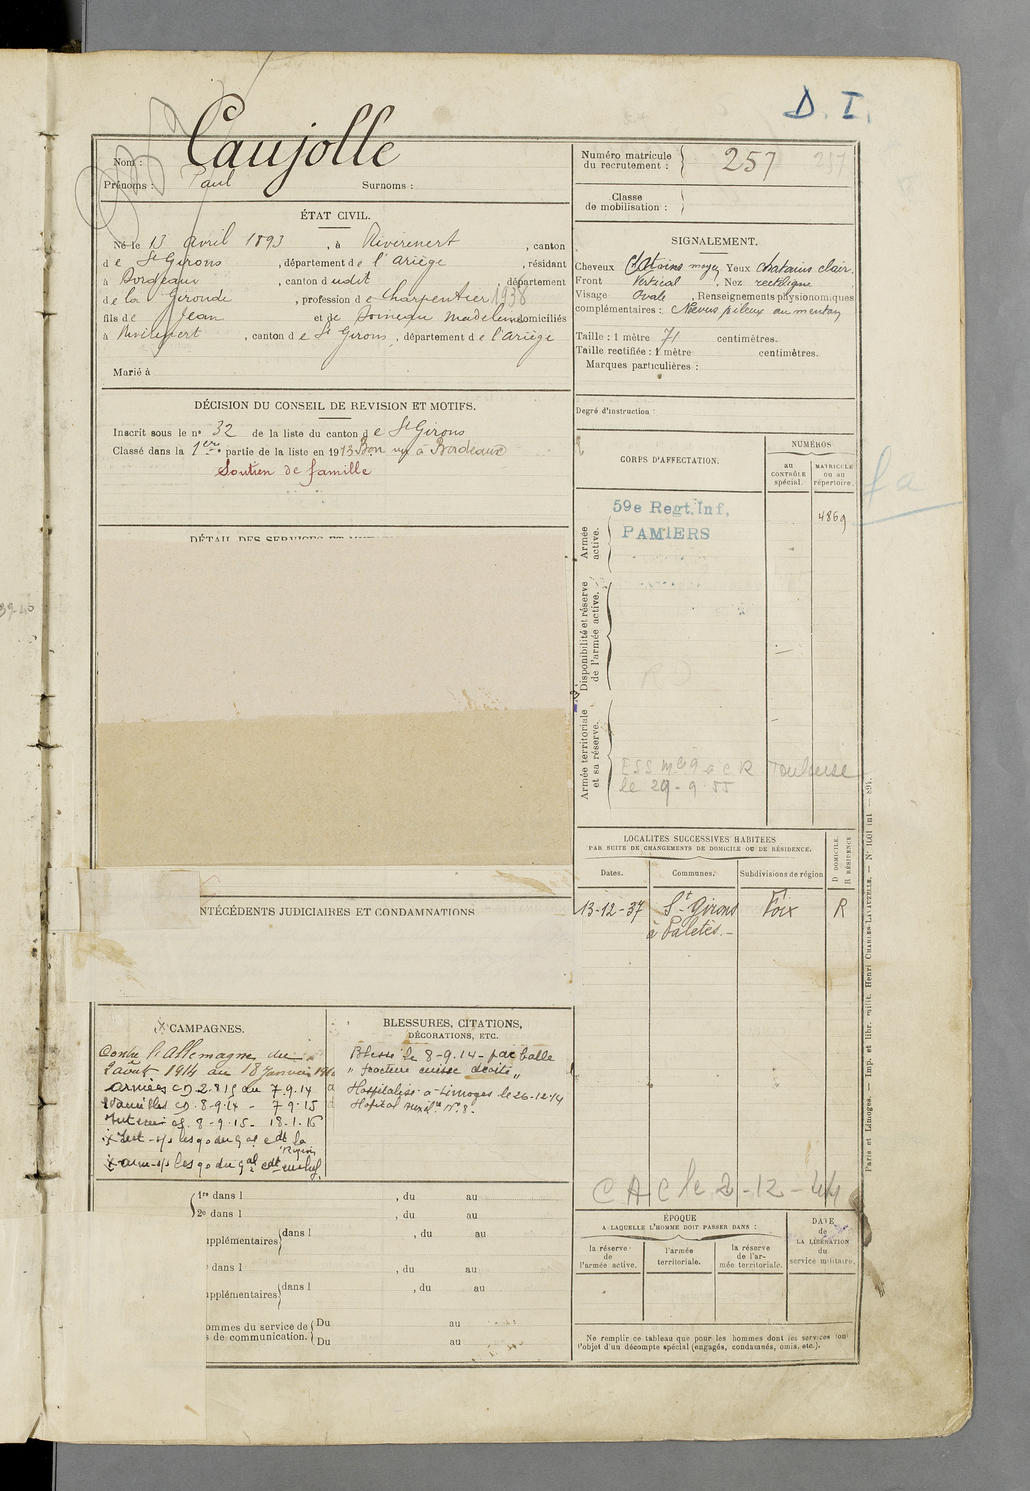 D. I.
Nom : Caujolle
Prénoms : Paul Surnoms :
ÉTAT CIVIL.
Né le 13 avril 1893, à Rivèrenert, canton
de St Girons, département de l'Ariège, résidant
à Bordeaux, canton dudit, département
de la Gironde, profession de Charpentier 1938
fils de Jean et de Soineau Madeleine domiciliés
à Rivèrenert, canton de St Girons, département de l'Ariège
Marié à
DÉCISION DU CONSEIL DE REVISION ET MOTIFS.
Inscrit sous le n° 32 de la liste du canton de St Girons
Classé dans la 1ère partie de la liste en 1913 Bon vu à Bordeaux
Soutien de famille
DÉTAIL DES SERVICES ET
NTÉCÉDENTS JUDICIAIRES ET CONDAMNATIONS
CAMPAGNES.
Contre l'Allemagne du
2 août 1914 au 18 janvier
armées CD 2.8.15 au 7.9.14
8.9.14 - 7.9.15
8-9-15 - 18.1.16
BLESSURES, CITATIONS,
DÉCORATIONS, ETC.
Blessé le 8-9-14 - par balle
" fracture cuisse droite "
Hospitalisé à Limoges le 26-12-14
Hôpital n° 8 -
1re dans l , du au
2e dans l , du au
pplémentaires dans l , du au
dans l , du au
pplémentaires dans l , du au
ommes du service de Du au
s de communication. Du au
Numéro matricule
du recrutement : 257 257
Classe
de mobilisation :
SIGNALEMENT.
Cheveux Chatains moyen Yeux chatains clair.
Front Vertical, Nez rectiligne
Visage Ovale, Renseignements physionomiques
complémentaires : Naevus pileux au menton
Taille : 1 mètre 71 centimètres.
Taille rectifiée : 1 mètre centimètres.
Marques particulières :
Degré d'instruction
CORPS D'AFFECTATION.
NUMÉROS
au
CONTRÔLE
spécial.
MATRICULE
ou au
répertoire.
Armée
active.
59e Regt. Inf.
PAMIERS
4869
fa
Disponibilité et réserve
de l'armée active.
Armée territoriale
et sa réserve.
Toulouse
le 29-9-55
LOCALITÉS SUCCESSIVES HABITÉES
PAR SUITE DE CHANGEMENTS DE DOMICILE OU DE RÉSIDENCE.
Dates. Communes. Subdivisions de région D DOMICILE. R RÉSIDENCE
13-12-37 St Girons Foix R
à Palétès. -
CAC le 2-12-44
ÉPOQUE
A LAQUELLE L'HOMME DOIT PASSER DANS :
la réserve
de
l'armée active.
l'armée
territoriale.
la réserve
de l'ar-
mée territoriale.
DATE
de
LA LIBÉRATION
du
service militaire.
Ne remplir ce tableau que pour les hommes dont les services font
l'objet d'un décompte spécial (engagés, condamnés, omis, etc.).
Paris et Limoges. — Imp. et libr. milit. Henri CHARLES-LAVAUZELLE. — N° 1401 int — 897.